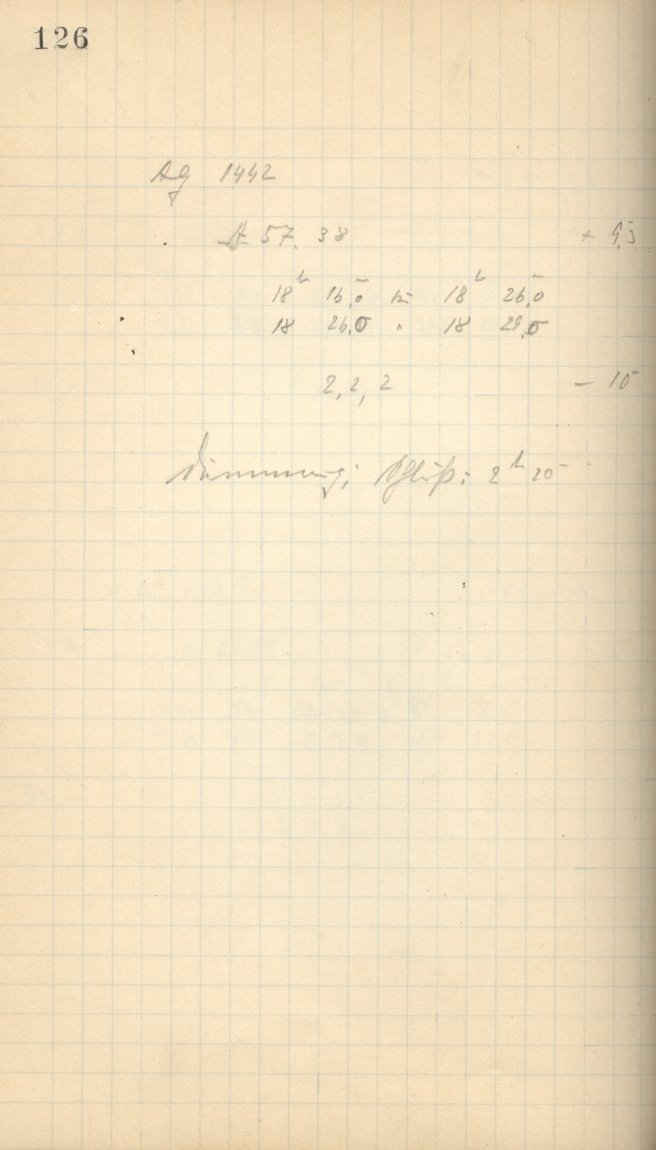 126
Ag 1442
A 57. 38 + 9,5
18ʰ 16,0 bis 18ʰ 26,0
18 26,0 " 18 29,0
2, 2, 2 — 10
Dämmerung; Schluß: 2ʰ 20